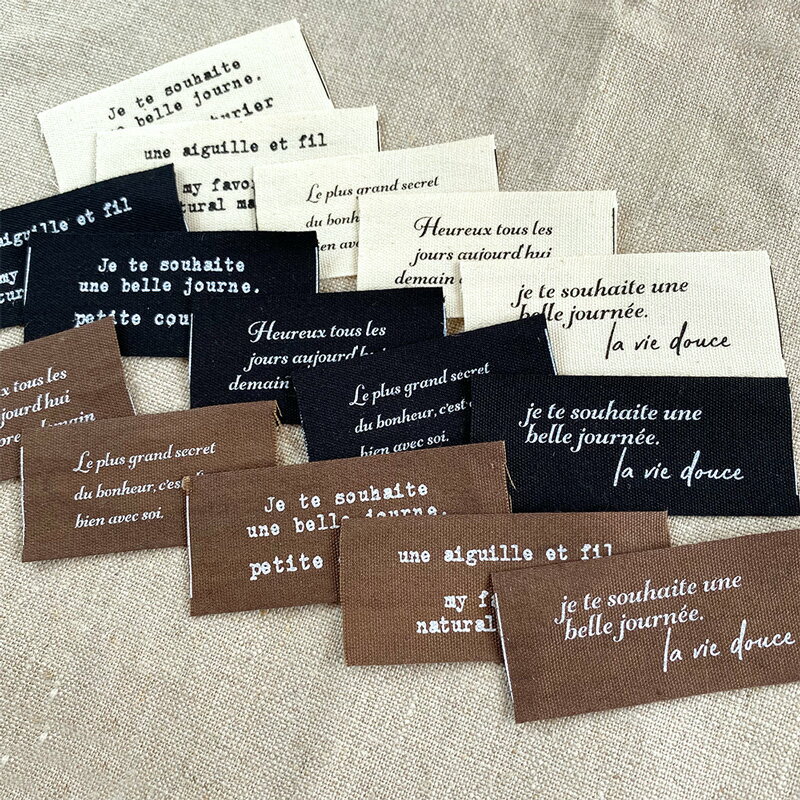 Je te souhaite
belle journe.
une aiguille et fil
my
Le plus grand secret
du
Heureux tous les
jours aujourd'hui
demain
je te souhaite une
belle journée.
la vie douce
et fil
my
Je te souhaite
une belle journe.
petite
Heureux tous les
jours
demain
Le plus grand secret
du bonheur, c'est
bien avec soi.
je te souhaite une
belle journée.
la vie douce
tous les
hui
Le plus grand secret
du bonheur, c'est
bien avec soi.
Je te souhaite
une belle journe.
petite
une aiguille et fil
my
natural
je te souhaite une
belle journée.
la vie douce